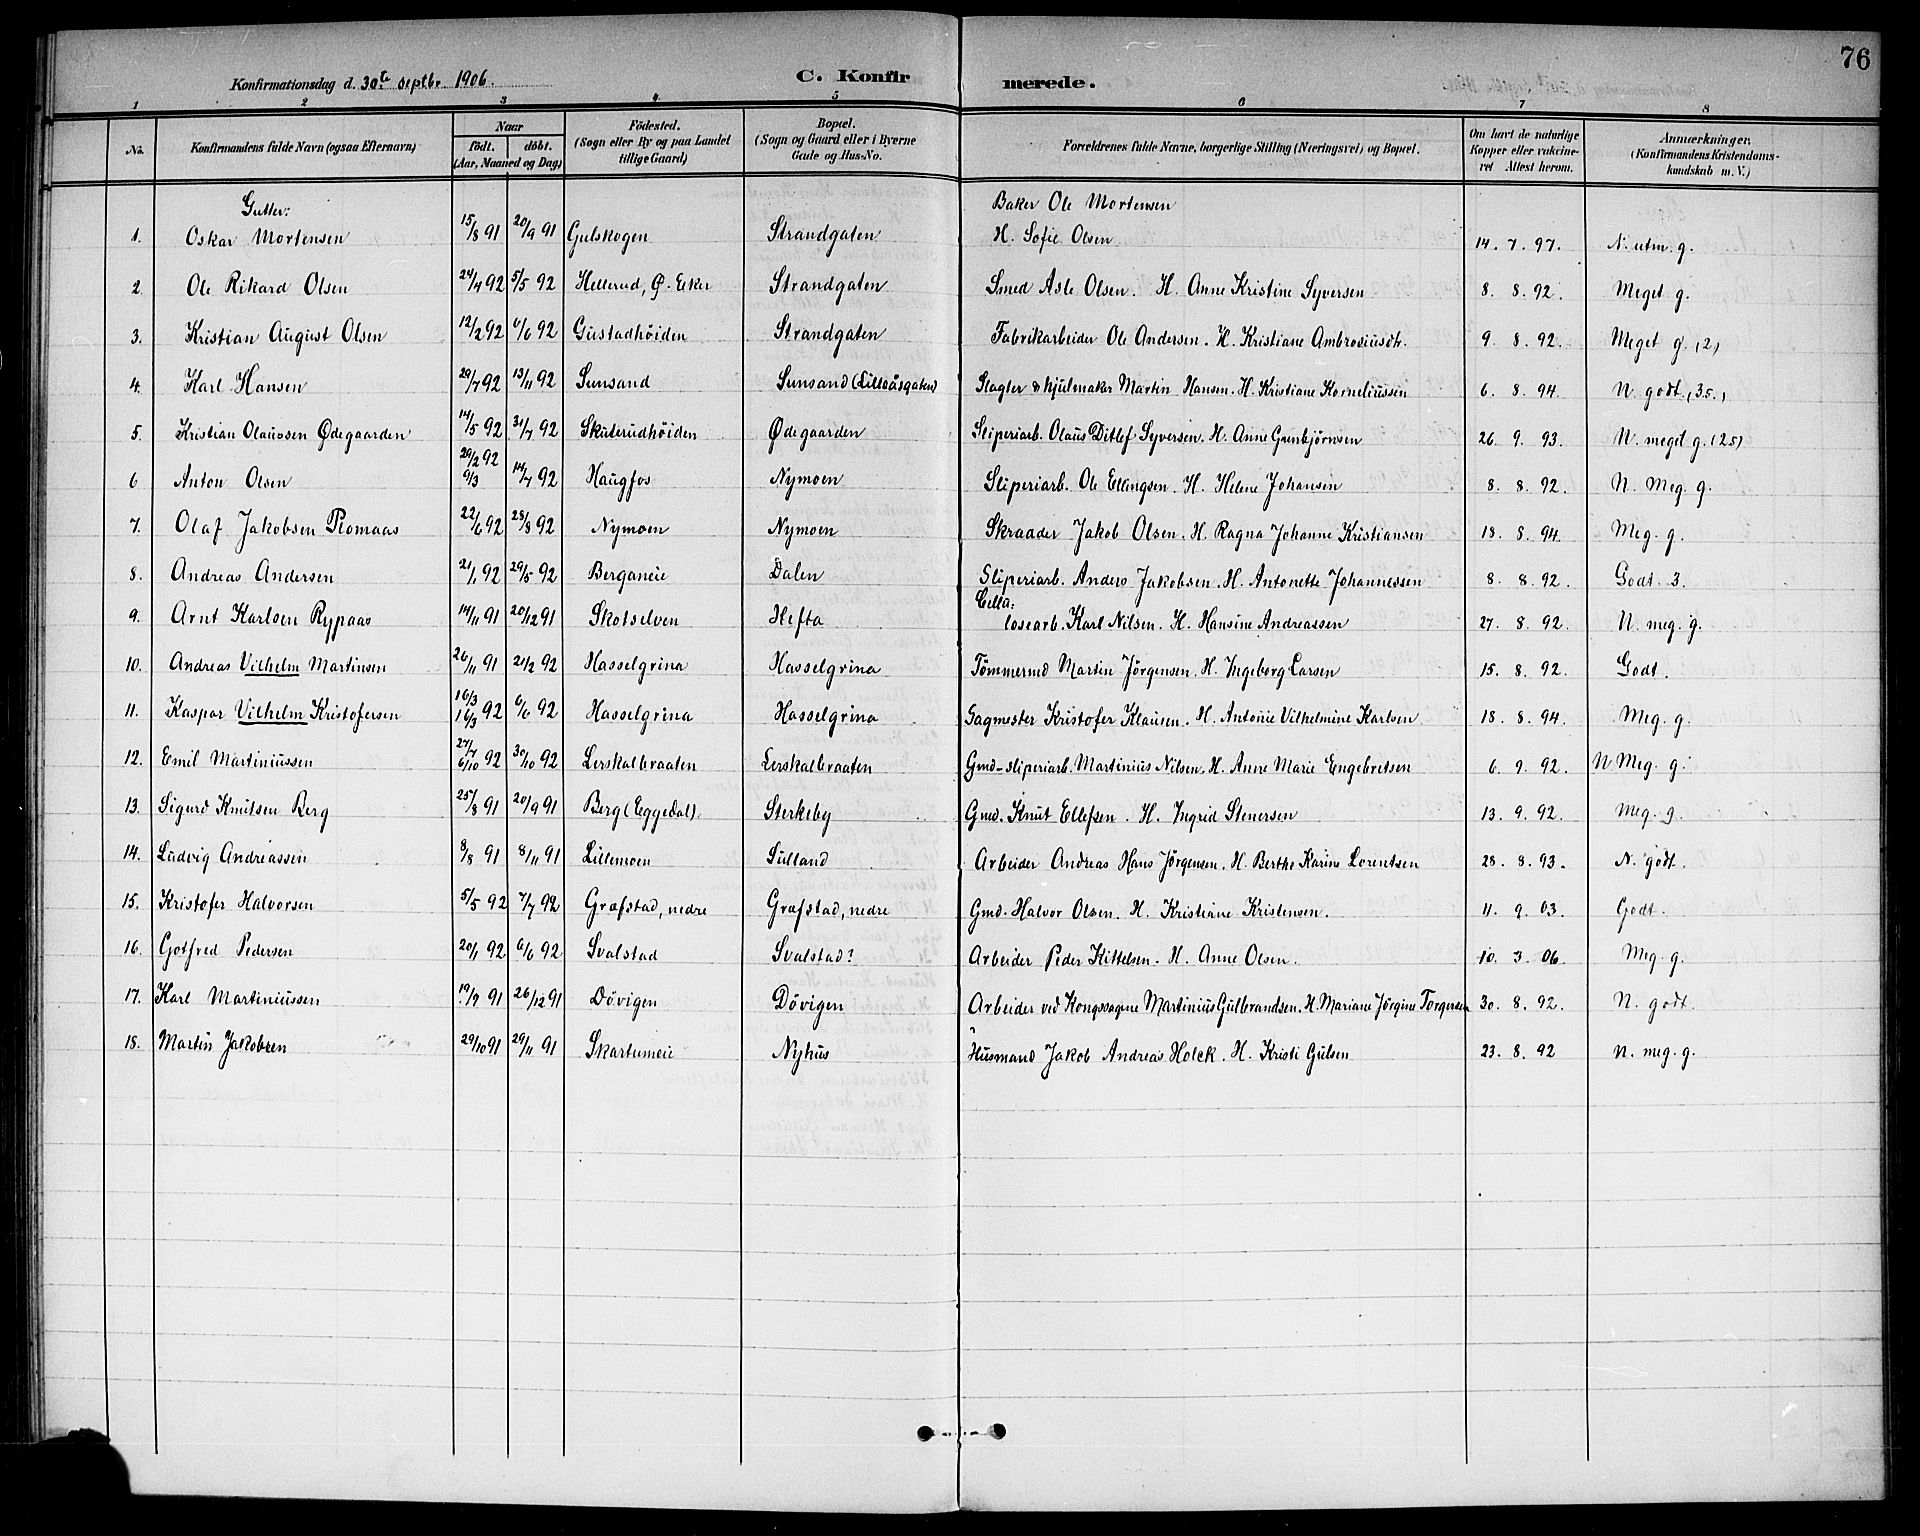 76
Konfirmationsdag d. 30te septbr. 1906.
C. Konfirmerede.
1 2 3 4 5 6 7 8
No. | Konfirmandens fulde Navn (ogsaa Efternavn) | Naar født. døbt. (Aar, Maaned og Dag) | Födested. (Sogn eller By og paa Landet tillige Gaard) | Bopæl. (Sogn og Gaard eller i Byerne Gade og Hus-No. | Forældrenes fulde Navne, borgerlige Stilling (Næringsvei) og Bopæl. | Om havt de naturlige Kopper eller vakcineret Attest herom. | Anmærkninger. (Konfirmandens Kristendomskundskab m. V.)
Gutter:
1. Oskar Mortensen 15/8 91 20/9 91 Gulskogen Strandgaten Baker Ole Mortensen H. Sofie Olsen 14. 7. 97. N. utm. g.
2. Ole Rikard Olsen 24/4 92 5/5 92 Hellerud, Ø. Eker Strandgaten Smed Asle Olsen. H. Anne Kristine Syversen 8. 8. 92. Meget g.
3. Kristian August Olsen 12/2 92 6/6 92 Gustadhöiden Strandgaten Fabrikarbeider Ole Andersen. H. Kristiane Ambrosiusdtr. 9. 8. 92. Meget g. (2)
4. Karl Hansen 29/7 92 13/11 92 Sunsand Sunsand (Lilleaasgaten) Slagter & hjulmaker Martin Hansen. H. Kristiane Korneliussen 6. 8. 94. N. godt. (3.5.)
5. Kristian Olaussen Ødegaarden 14/5 92 31/7 92 Skuterudhöiden Ødegaarden Sliperiarb. Olaus Ditlef Syversen. H. Anne Gunbjörnsen 26. 9. 93. N. meget g. (25)
6 Anton Olsen 29/2 92 9/3 14/7 92 Haugfos Nymoen Sliperiarb. Ole Ellingsen. H. Helene Johansen 8. 8. 92. N. Meg. g.
7. Olaf Jakobsen Plomaas 22/6 92 28/8 92 Nymoen Nymoen Skraader Jakob Olsen. H. Ragna Johanne Kristiansen 18. 8. 94. Meg. g.
8. Andreas Andersen 21/1 92 29/5 92 Berganeie Dalen Sliperiarb. Anders Jakobsen. H. Antonette Johannessen 8. 8. 92. Godt. 3.
9. Arnt Karlsen Rypaas 14/11 91 20/12 91 Skotselven Hefta Cellu:losearb. Karl Nilsen. H. Hansine Andreassen 27. 8. 92. N. meg. g.
10. Andreas Vilhelm Martinsen 26/11 91 21/2 92 Hasselgrina Hasselgrina Tömmermd Martin Jörgensen. H. Ingeborg Larsen 15. 8. 92. Godt.
11. Kaspar Vilhelm Kristofersen 16/3 16/3 92 6/6 92 Hasselgrina Hasselgrina Sagmester Kristofer Klausen. H. Antonie Vilhelmine Karlsen 18. 8. 94. Meg. g.
12. Emil Martiniussen 27/7 6/10 92 30/10 92 Lerskalbraaten Lerskalbraaten Gmd-sliperiarb. Martinius Nilsen. H. Anne Marie Engebretsen 6. 9. 92. N. Meg. g.
13. Sigurd Knutsen Berg 25/8 91 20/9 91 Berg (Eggedal). Sterkeby Gmd. Knut Ellefsen. H. Ingrid Stenersen 13. 9. 92. Meg. g.
14. Ludvig Andreassen 8/8 91 8/11 91 Lillemoen Sulland Arbeider Andreas Hans Jörgensen. H. Berthe Karine Lorentsen 28. 8. 93. N. godt.
15. Kristofer Halvorsen 5/5 92 7/7 92 Grafstad, nedre Grafstad, nedre Gmd. Halvor Olsen. H. Kristiane Kristensen. 11. 9. 03. Godt.
16. Gotfred Pedersen 20/1 92 6/6 92 Svalstad Svalstad? Arbeider Peder Kittelsen. H. Anne Olsen. 10. 3. 06. Meg. g.
17. Karl Martiniussen 19/9 91 26/12 91 Dövigen Dövigen Arbeider ved Kongssagene Martinius Gulbrandsen. H. Mariane Jörgine Torgersen 30. 8. 92. N. godt.
18. Martin Jakobsen 29/10 91 29/11 91 Skartumeie Nyhus Husmand Jakob Andreas Holck. H. Kristi Gulsen 23. 8. 92 N. meg. g.